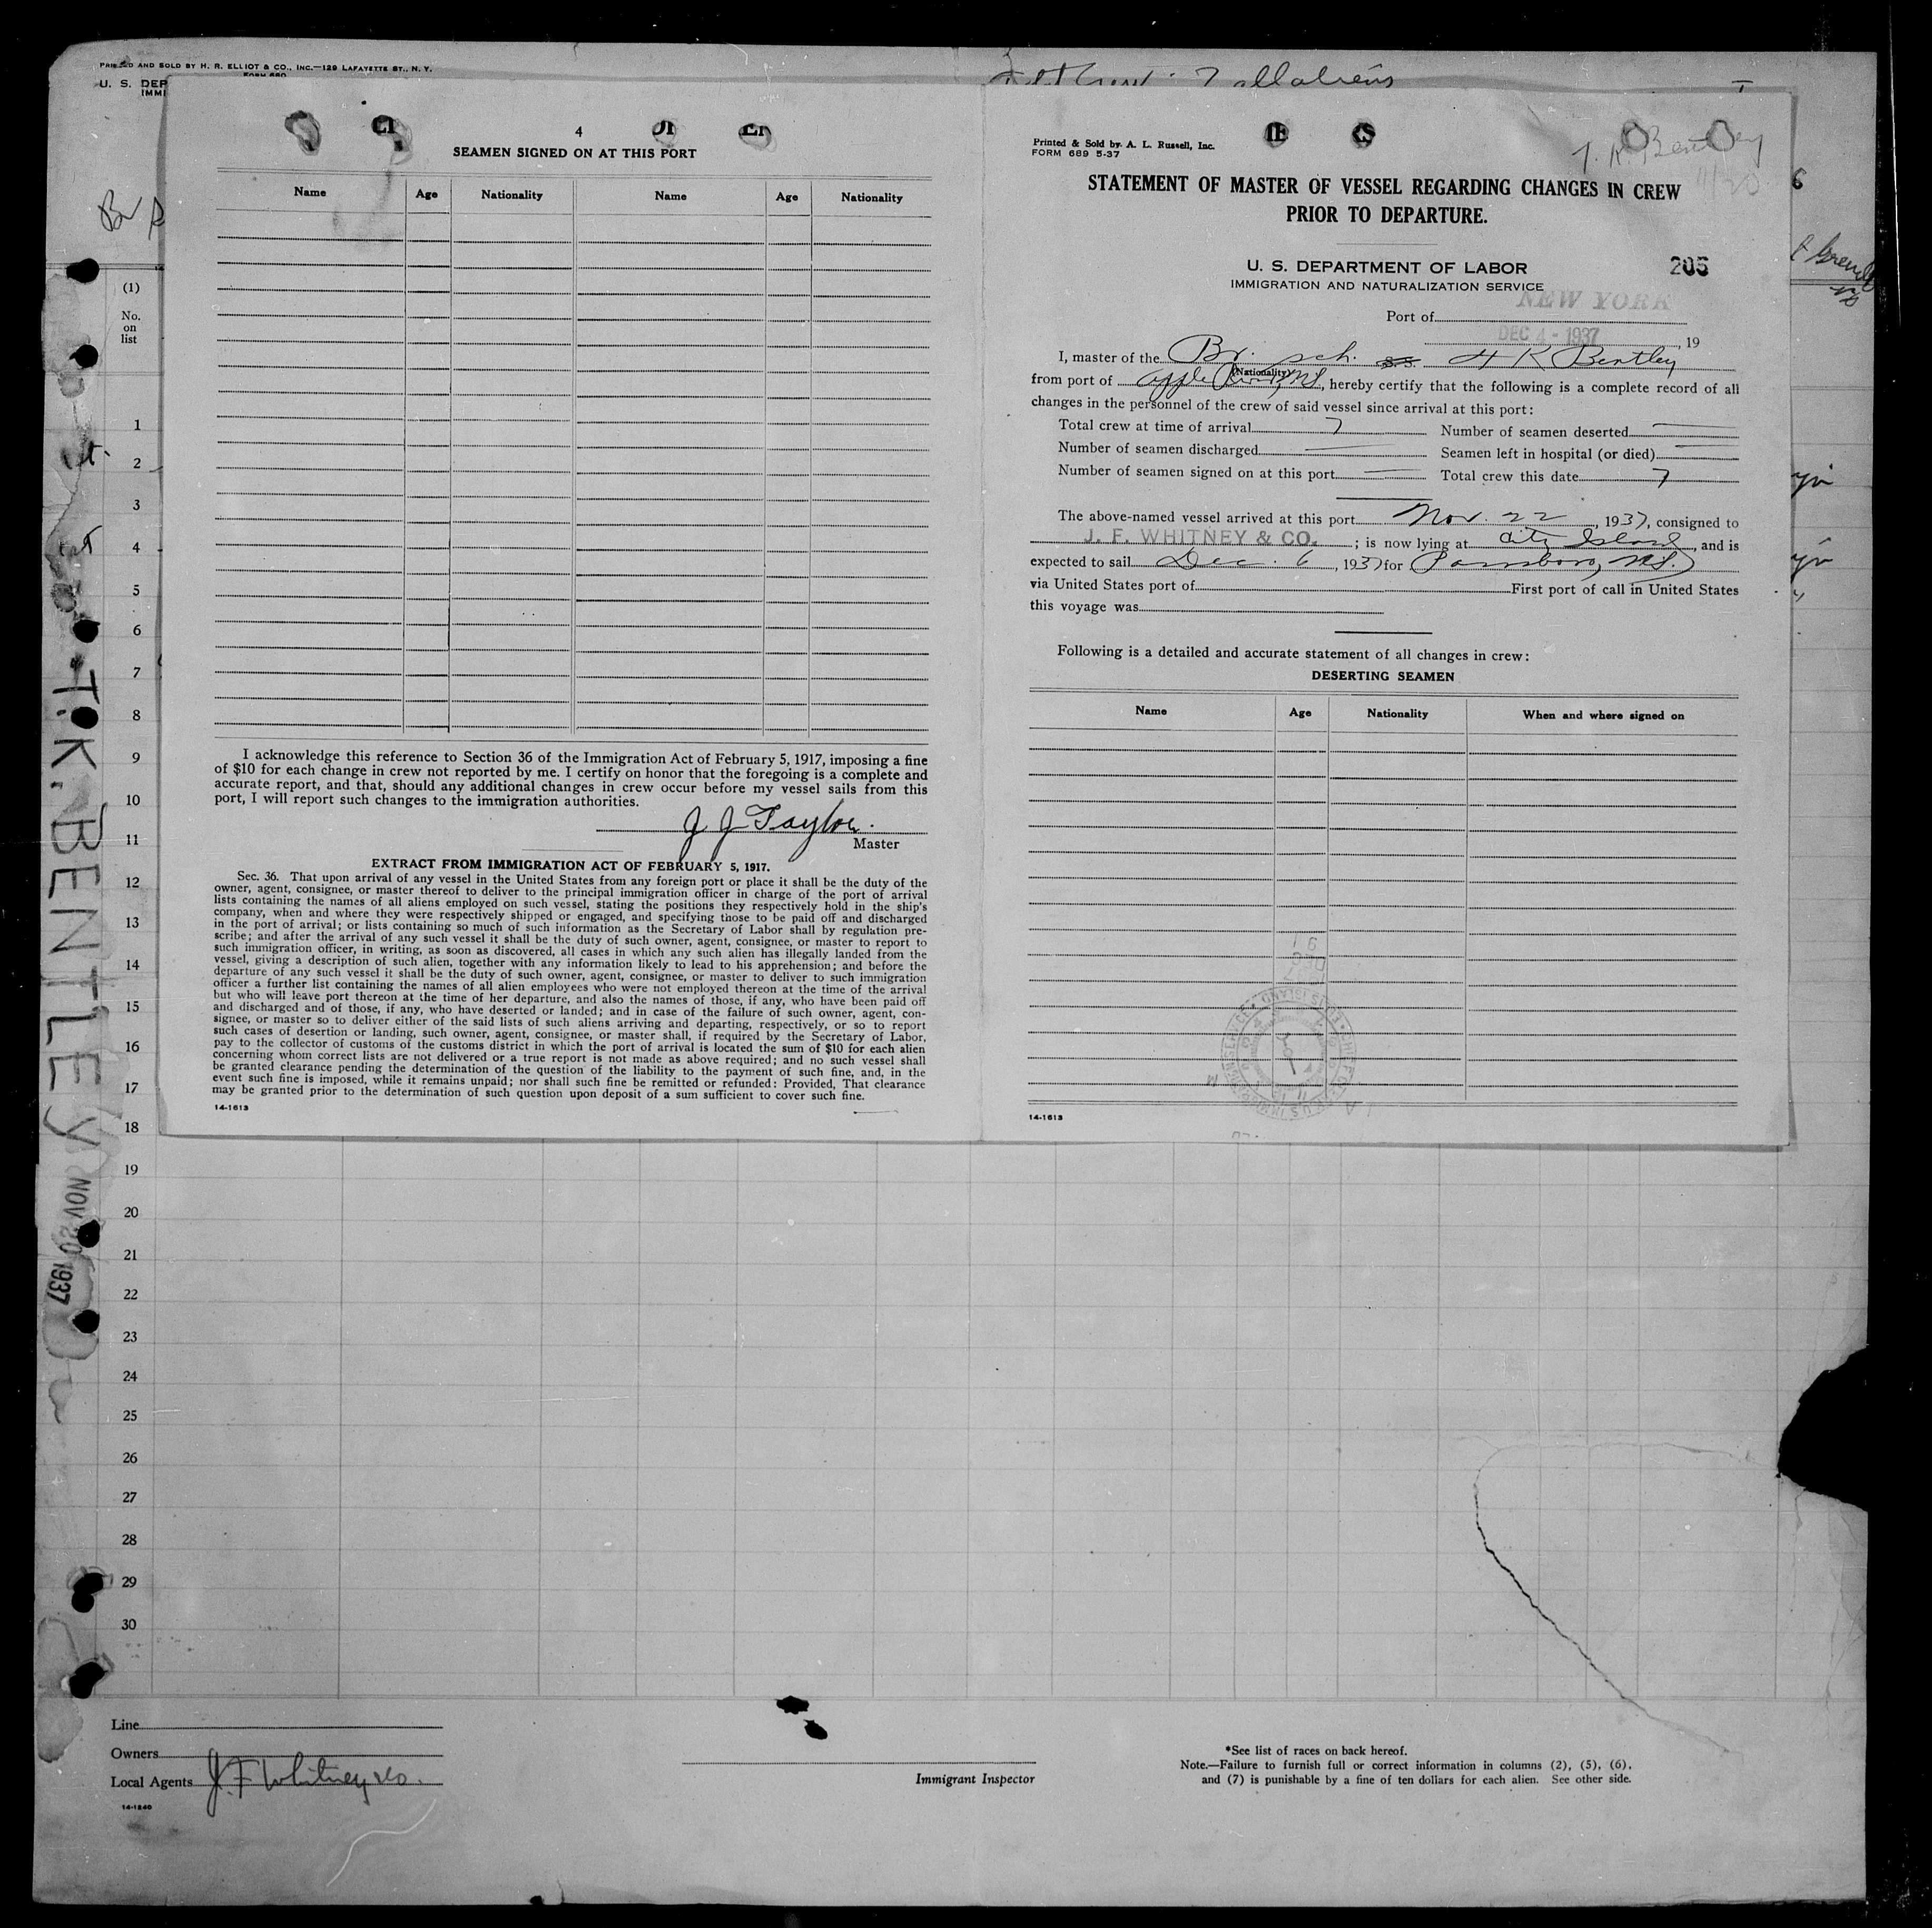 PRINTED AND SOLD BY H. R. ELLIOT & CO., INC.—129 LAFAYETTE ST., N. Y.
FORM 680
U. S. DEP
IMMI
7 all aliens
Br
(1)
No.
on
list
1
2
3
4
5
6
7
8
9
10
11
12
13
14
15
16
17
18
19
20
21
22
23
24
25
26
27
28
29
30
T.K. BENTLEY
NOV 20 1937
4
SEAMEN SIGNED ON AT THIS PORT
Name Age Nationality Name Age Nationality
I acknowledge this reference to Section 36 of the Immigration Act of February 5, 1917, imposing a fine
of $10 for each change in crew not reported by me. I certify on honor that the foregoing is a complete and
accurate report, and that, should any additional changes in crew occur before my vessel sails from this
port, I will report such changes to the immigration authorities.
J J Taylor.
Master
EXTRACT FROM IMMIGRATION ACT OF FEBRUARY 5, 1917.
Sec. 36. That upon arrival of any vessel in the United States from any foreign port or place it shall be the duty of the
owner, agent, consignee, or master thereof to deliver to the principal immigration officer in charge of the port of arrival
lists containing the names of all aliens employed on such vessel, stating the positions they respectively hold in the ship's
company, when and where they were respectively shipped or engaged, and specifying those to be paid off and discharged
in the port of arrival; or lists containing so much of such information as the Secretary of Labor shall by regulation pre-
scribe; and after the arrival of any such vessel it shall be the duty of such owner, agent, consignee, or master to report to
such immigration officer, in writing, as soon as discovered, all cases in which any such alien has illegally landed from the
vessel, giving a description of such alien, together with any information likely to lead to his apprehension; and before the
departure of any such vessel it shall be the duty of such owner, agent, consignee, or master to deliver to such immigration
officer a further list containing the names of all alien employees who were not employed thereon at the time of the arrival
but who will leave port thereon at the time of her departure, and also the names of those, if any, who have been paid off
and discharged and of those, if any, who have deserted or landed; and in case of the failure of such owner, agent, con-
signee, or master so to deliver either of the said lists of such aliens arriving and departing, respectively, or so to report
such cases of desertion or landing, such owner, agent, consignee, or master shall, if required by the Secretary of Labor,
pay to the collector of customs of the customs district in which the port of arrival is located the sum of $10 for each alien
concerning whom correct lists are not delivered or a true report is not made as above required; and no such vessel shall
be granted clearance pending the determination of the question of the liability to the payment of such fine, and, in the
event such fine is imposed, while it remains unpaid; nor shall such fine be remitted or refunded: Provided, That clearance
may be granted prior to the determination of such question upon deposit of a sum sufficient to cover such fine.
14-1613
Printed & Sold by A. L. Russell, Inc.
FORM 689 5-37
T. K Bentley
11/20
STATEMENT OF MASTER OF VESSEL REGARDING CHANGES IN CREW
PRIOR TO DEPARTURE.
U. S. DEPARTMENT OF LABOR
205
IMMIGRATION AND NATURALIZATION SERVICE
NEW YORK
Port of
DEC 4 - 1937 , 19
I, master of the Br. sch. S.S. T K Bentley
(Nationality)
from port of Apple River, N.S., hereby certify that the following is a complete record of all
changes in the personnel of the crew of said vessel since arrival at this port:
Total crew at time of arrival 7 Number of seamen deserted
Number of seamen discharged Seamen left in hospital (or died)
Number of seamen signed on at this port Total crew this date 7
The above-named vessel arrived at this port Nov. 22, 1937, consigned to
J. F. WHITNEY & CO. ; is now lying at City Island, and is
expected to sail Dec. 6, 1937 for Parrsboro, N.S.
via United States port of First port of call in United States
this voyage was
Following is a detailed and accurate statement of all changes in crew:
DESERTING SEAMEN
Name Age Nationality When and where signed on
14-1613
Line
Owners
Local Agents J. F Whitney & Co.
14-1240
Immigrant Inspector
*See list of races on back hereof.
Note.—Failure to furnish full or correct information in columns (2), (5), (6),
and (7) is punishable by a fine of ten dollars for each alien. See other side.